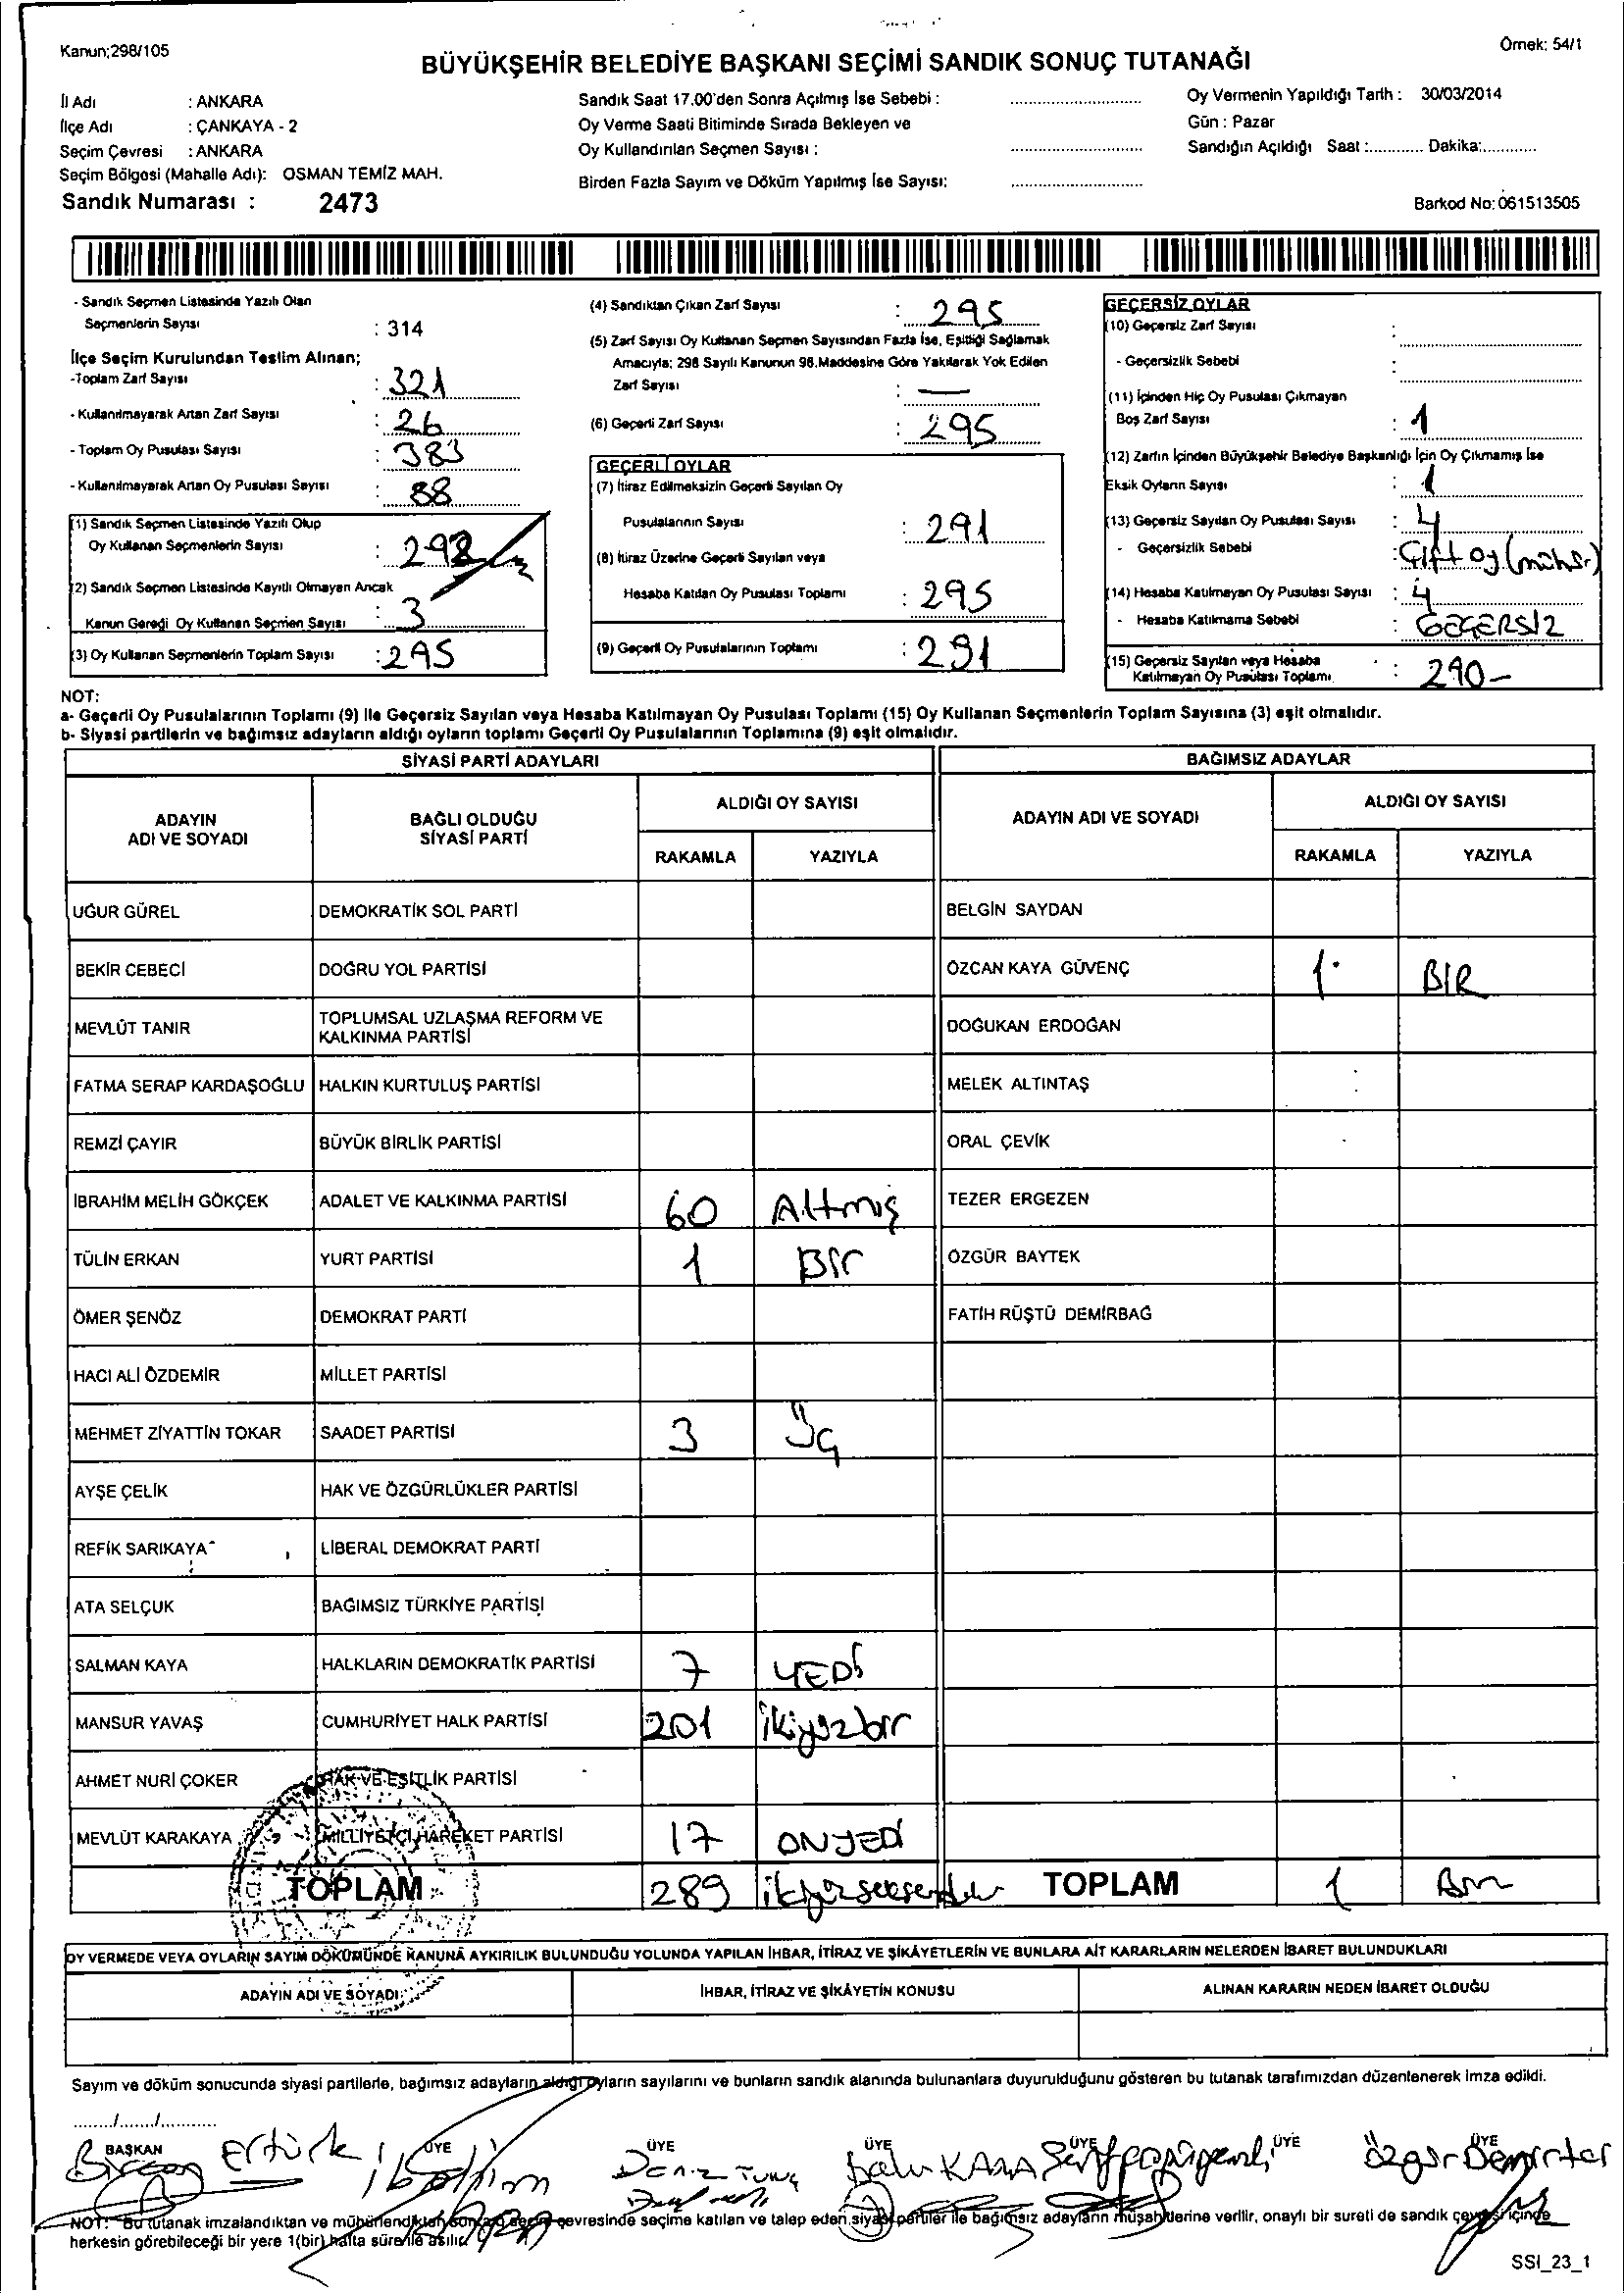 Kanun;298/105
Örnek: 54/1
BÜYÜKŞEHİR BELEDİYE BAŞKANI SEÇİMİ SANDIK SONUÇ TUTANAĞI
İl Adı : ANKARA
İlçe Adı : ÇANKAYA - 2
Seçim Çevresi : ANKARA
Seçim Bölgesi (Mahalle Adı): OSMAN TEMİZ MAH.
Sandık Numarası : 2473
Sandık Saat 17.00'den Sonra Açılmış İse Sebebi :
Oy Verme Saati Bitiminde Sırada Bekleyen ve
Oy Kullandırılan Seçmen Sayısı :
Birden Fazla Sayım ve Döküm Yapılmış İse Sayısı:
Oy Vermenin Yapıldığı Tarih : 30/03/2014
Gün : Pazar
Sandığın Açıldığı Saat :............ Dakika:............
Barkod No: 061513505
- Sandık Seçmen Listesinde Yazılı Olan
Seçmenlerin Sayısı : 314
İlçe Seçim Kurulundan Teslim Alınan;
-Toplam Zarf Sayısı : 321
- Kullanılmayarak Artan Zarf Sayısı : 26
- Toplam Oy Pusulası Sayısı : 383
- Kullanılmayarak Artan Oy Pusulası Sayısı : 88
(1) Sandık Seçmen Listesinde Yazılı Olup
Oy Kullanan Seçmenlerin Sayısı : 292
(2) Sandık Seçmen Listesinde Kayıtlı Olmayan Ancak
Kanun Gereği Oy Kullanan Seçmen Sayısı : 3
(3) Oy Kullanan Seçmenlerin Toplam Sayısı : 295
(4) Sandıktan Çıkan Zarf Sayısı : 295
(5) Zarf Sayısı Oy Kullanan Seçmen Sayısından Fazla İse, Eşitliği Sağlamak
Amacıyla; 298 Sayılı Kanunun 98.Maddesine Göre Yakılarak Yok Edilen
Zarf Sayısı : —
(6) Geçerli Zarf Sayısı : 295
GEÇERLİ OYLAR
(7) İtiraz Edilmeksizin Geçerli Sayılan Oy
Pusulalarının Sayısı : 291
(8) İtiraz Üzerine Geçerli Sayılan veya
Hesaba Katılan Oy Pusulası Toplamı : 295
(9) Geçerli Oy Pusulalarının Toplamı : 291
GEÇERSİZ OYLAR
(10) Geçersiz Zarf Sayısı :
- Geçersizlik Sebebi :
(11) İçinden Hiç Oy Pusulası Çıkmayan
Boş Zarf Sayısı : 1
(12) Zarfın İçinden Büyükşehir Belediye Başkanlığı İçin Oy Çıkmamış İse
Eksik Oyların Sayısı : 1
(13) Geçersiz Sayılan Oy Pusulası Sayısı : 4
- Geçersizlik Sebebi : Çift oy (mühür)
(14) Hesaba Katılmayan Oy Pusulası Sayısı : 4
- Hesaba Katılmama Sebebi : GEÇERSİZ
(15) Geçersiz Sayılan veya Hesaba
Katılmayan Oy Pusulası Toplamı : 290-
NOT:
a- Geçerli Oy Pusulalarının Toplamı (9) ile Geçersiz Sayılan veya Hesaba Katılmayan Oy Pusulası Toplamı (15) Oy Kullanan Seçmenlerin Toplam Sayısına (3) eşit olmalıdır.
b- Siyasi partilerin ve bağımsız adayların aldığı oyların toplamı Geçerli Oy Pusulalarının Toplamına (9) eşit olmalıdır.
SİYASİ PARTİ ADAYLARI BAĞIMSIZ ADAYLAR
ADAYIN ADI VE SOYADI
BAĞLI OLDUĞU SİYASİ PARTİ
ALDIĞI OY SAYISI
RAKAMLA YAZIYLA
ADAYIN ADI VE SOYADI
ALDIĞI OY SAYISI
RAKAMLA YAZIYLA
UĞUR GÜREL DEMOKRATİK SOL PARTİ BELGİN SAYDAN
BEKİR CEBECİ DOĞRU YOL PARTİSİ ÖZCAN KAYA GÜVENÇ 1 BİR
MEVLÜT TANIR TOPLUMSAL UZLAŞMA REFORM VE KALKINMA PARTİSİ DOĞUKAN ERDOĞAN
FATMA SERAP KARDAŞOĞLU HALKIN KURTULUŞ PARTİSİ MELEK ALTINTAŞ
REMZİ ÇAYIR BÜYÜK BİRLİK PARTİSİ ORAL ÇEVİK
İBRAHİM MELİH GÖKÇEK ADALET VE KALKINMA PARTİSİ 60 Altmış TEZER ERGEZEN
TÜLİN ERKAN YURT PARTİSİ 1 Bir ÖZGÜR BAYTEK
ÖMER ŞENÖZ DEMOKRAT PARTİ FATİH RÜŞTÜ DEMİRBAĞ
HACI ALİ ÖZDEMİR MİLLET PARTİSİ
MEHMET ZİYATTİN TOKAR SAADET PARTİSİ 3 Üç
AYŞE ÇELİK HAK VE ÖZGÜRLÜKLER PARTİSİ
REFİK SARIKAYA LİBERAL DEMOKRAT PARTİ
ATA SELÇUK BAĞIMSIZ TÜRKİYE PARTİSİ
SALMAN KAYA HALKLARIN DEMOKRATİK PARTİSİ 7 YEDİ
MANSUR YAVAŞ CUMHURİYET HALK PARTİSİ 201 ikiyüzbir
AHMET NURİ ÇOKER HAK VE EŞİTLİK PARTİSİ
MEVLÜT KARAKAYA MİLLİYETÇİ HAREKET PARTİSİ 17 ONYEDİ
TOPLAM 289 ikiyüzseksendokuz TOPLAM 1 Bir
OY VERMEDE VEYA OYLARIN SAYIM DÖKÜMÜNDE KANUNA AYKIRILIK BULUNDUĞU YOLUNDA YAPILAN İHBAR, İTİRAZ VE ŞİKÂYETLERİN VE BUNLARA AİT KARARLARIN NELERDEN İBARET BULUNDUKLARI
ADAYIN ADI VE SOYADI İHBAR, İTİRAZ VE ŞİKÂYETİN KONUSU ALINAN KARARIN NEDEN İBARET OLDUĞU
Sayım ve döküm sonucunda siyasi partilerle, bağımsız adayların aldığı oyların sayılarını ve bunların sandık alanında bulunanlara duyurulduğunu gösteren bu tutanak tarafımızdan düzenlenerek imza edildi.
......../......../............
BAŞKAN ÜYE ÜYE ÜYE ÜYE ÜYE ÜYE
Ertürk DENİZ TUNÇ KARA
NOT: Bu tutanak imzalandıktan ve mühürlendikten sonra seçim çevresinde seçime katılan ve talep eden siyasi partiler ile bağımsız adayların müşahitlerine verilir, onaylı bir sureti de sandık çevresi içinde
herkesin görebileceği bir yere 1(bir) hafta süre ile asılır.
SSI_23_1